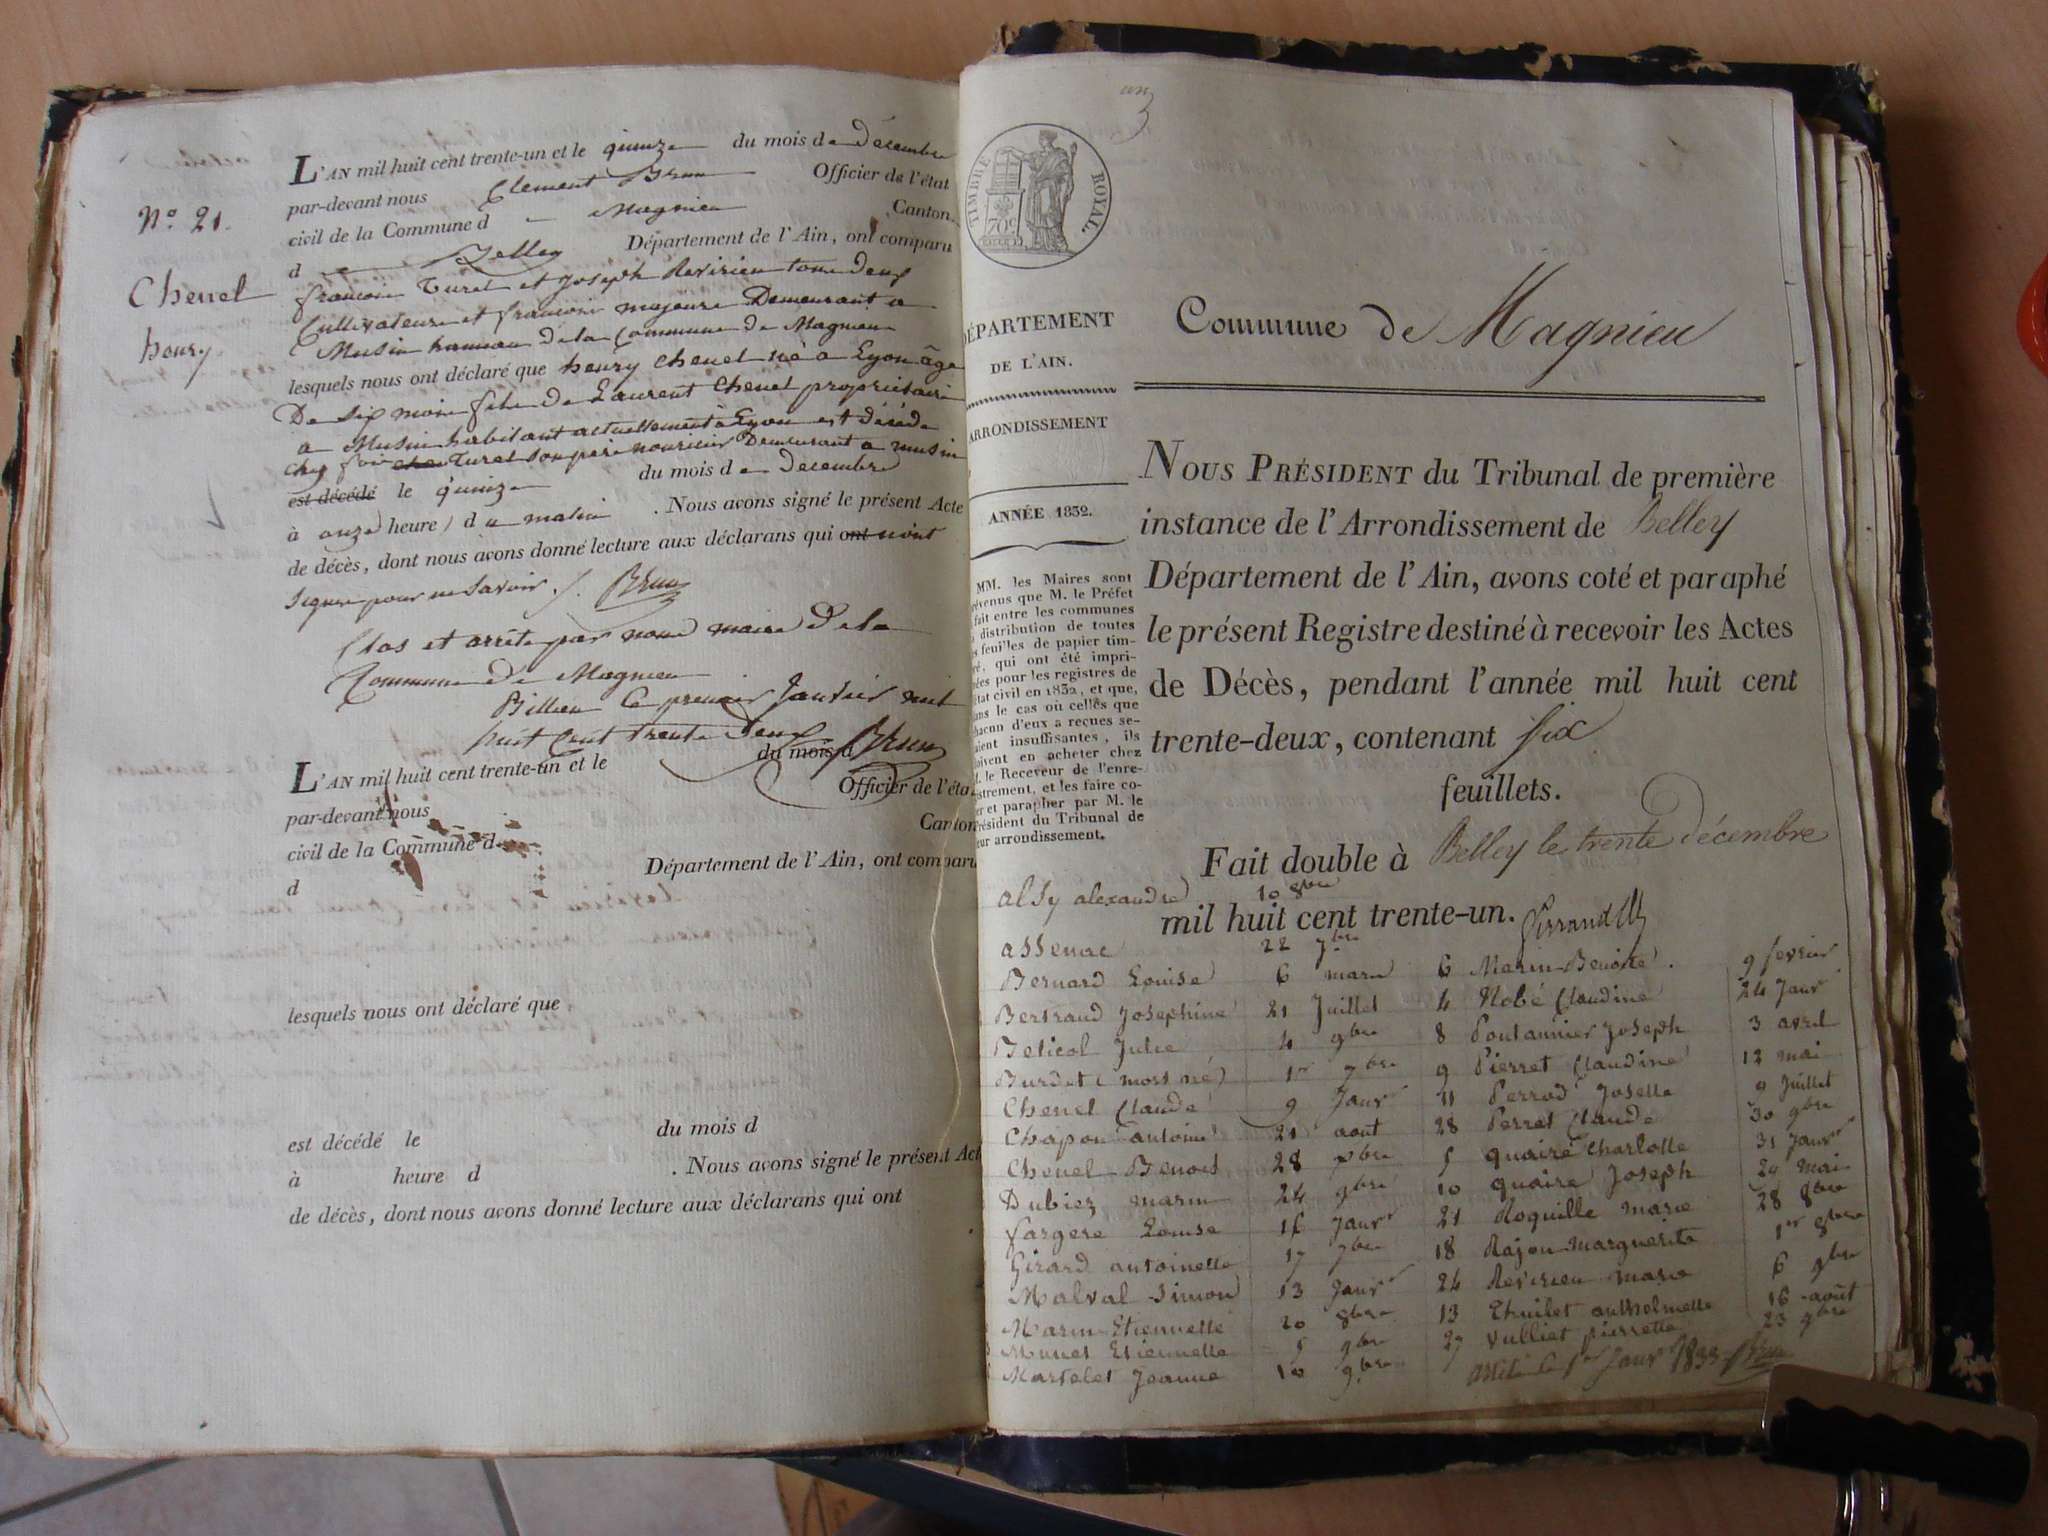 N.º 21.
Chenel
henry.
L'AN mil huit cent trente-un et le quinze du mois de Décembre
par-devant nous Clement Brun Officier de l'état
civil de la Commune d Magnieu Canton
d Belley Département de l'Ain, ont comparu
francois Turel et Joseph Revirieu tous deux
Cultivateurs et francois majeurs Demeurant a
Musin hameau de la Commune de Magnieu
lesquels nous ont déclaré que henry Chenel né a Lyon âge
De six mois fils de Laurent Chenel propriétaire
a Musin habitant actuellement à Lyon est décédé
chez Turel son père nouricier Demeurant a musin
est décédé le quinze du mois de decembre
à onze heures du matin . Nous avons signé le présent Acte
de décès, dont nous avons donné lecture aux déclarans qui ont n'ont
signer pour ne savoir . Brun
Clos et arrêté par nous maire De la
Commune de Magnieu
Billieu le premier Janvier mil
huit Cent trente Deux Brun
L'AN mil huit cent trente-un et le du mois d
par-devant nous Officier de l'éta
civil de la Commune d Canton
d Département de l'Ain, ont comparu
lesquels nous ont déclaré que
est décédé le du mois d
à heure d . Nous avons signé le présent Act
de décès, dont nous avons donné lecture aux déclarans qui ont
un
TIMBRE ROYAL.
70c
DÉPARTEMENT
DE L'AIN.
ARRONDISSEMENT
ANNÉE 1832.
MM. les Maires sont
évenus que M. le Préfet
fait entre les communes
distribution de toutes
s feuilles de papier tim-
ré, qui ont été impri-
ées pour les registres de
état civil en 1832, et que,
ans le cas où celles que
hacun d'eux a reçues se-
aient insuffisantes, ils
oivent en acheter chez
. le Receveur de l'enre-
strement, et les faire co-
er et parapher par M. le
résident du Tribunal de
eur arrondissement.
Commune de Magnieu
NOUS PRÉSIDENT du Tribunal de première
instance de l'Arrondissement de Belley
Département de l'Ain, avons coté et paraphé
le présent Registre destiné à recevoir les Actes
de Décès, pendant l'année mil huit cent
trente-deux, contenant six
feuillets.
Fait double à Belley le trente décembre
mil huit cent trente-un.
alsy alexandre 10 8bre
assenac 22 7bre
Bernard Louise 6 mars 6 Marin Benoite. 9 fevrier
Bertrand Josephine 21 Juillet 4 Nobé Claudine 24 Janvr
Beticol Julie 4 9bre 8 Pontannier Joseph 3 avril
Burdet (mort né) 1er 7bre 9 Pierret Claudine 12 mai
Chenel Claude 9 Janvr 11 Perrod Josette 9 Juillet
Chapon antoine 21 aout 28 Perret Claude 30 9bre
Chenel Benoit 28 5 quaire Charlotte 31 Janvr
Dubiez marin 24 9bre 10 quaire Joseph 29 mai
fargere Louise 16 Janvr 21 Roquille marie 28 8bre
Girard antoinette 17 7bre 18 Rajon marguerite 1er 8bre
Malval Simon 13 Janvr 24 Revirieu marie 6 9bre
Marin Etiennette 20 8bre 13 Thuilet anthelmette 16 août
Munet Etiennette 5 9bre 27 Vulliet pierrette 23 9bre
Martelet Jeanne 10 9bre arrêté le 1er Janvr 1833 Brun